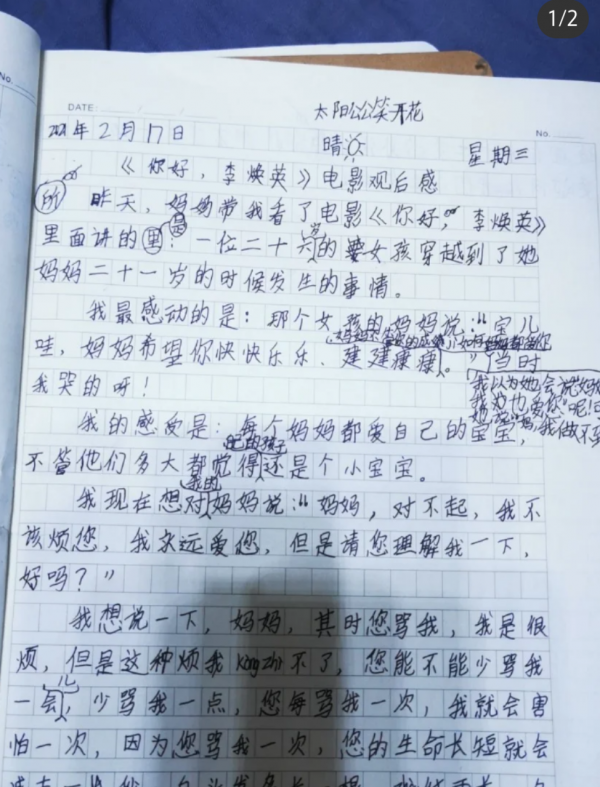 1/2
No.
DATE:
太阳公公笑开花
No.
2021年2月17日 晴 星期三
《你好，李焕英》电影观后感
昨天，妈妈带我看了电影《你好，李焕英》
里面讲的是：一位二十六岁的女孩穿越到了她
妈妈二十一岁的时候发生的事情。
我最感动的是：那个女孩的妈妈说：“宝儿
哇，妈妈希望你快快乐乐、建建康康。”当时
我哭的呀！
我以为她会说妈妈
我为也爱你呢！
我做不到
我的感受是：每个妈妈都爱自己的宝宝，
不管他们多大都觉得自己的孩子还是个小宝宝。
我现在想对我的妈妈说：“妈妈，对不起，我不
该烦您，我永远爱您，但是请您理解我一下，
好吗？”
我想说一下，妈妈，其时您骂我，我是很
烦，但是这种烦我kong zhi不了，您能不能少骂我
一会儿，少骂我一点，您每骂我一次，我就会害
怕一次，因为您骂我一次，您的生命长短就会